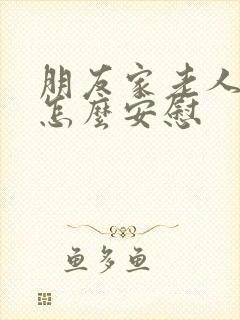 朋友家老人
怎麼安慰
鱼多鱼